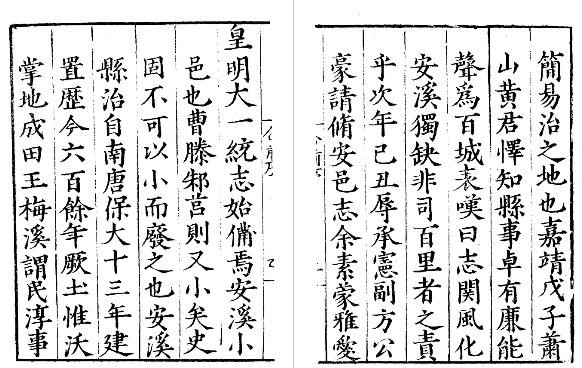 皇明大一統志始俻焉安溪小
邑也曹滕邾莒則又小矣史
固不可以小而廢之也安溪
縣治自南唐保大十三年建
置歷今六百餘年厥土惟沃
掌地成田王梅溪謂民淳事
簡易治之地也嘉靖戊子蕭
山黃君懌知縣事卓有廉能
聲爲百城表嘆曰志關風化
安溪獨缺非司百里者之責
乎次年己丑辱承憲副方公
豪請脩安邑志余素蒙雅愛